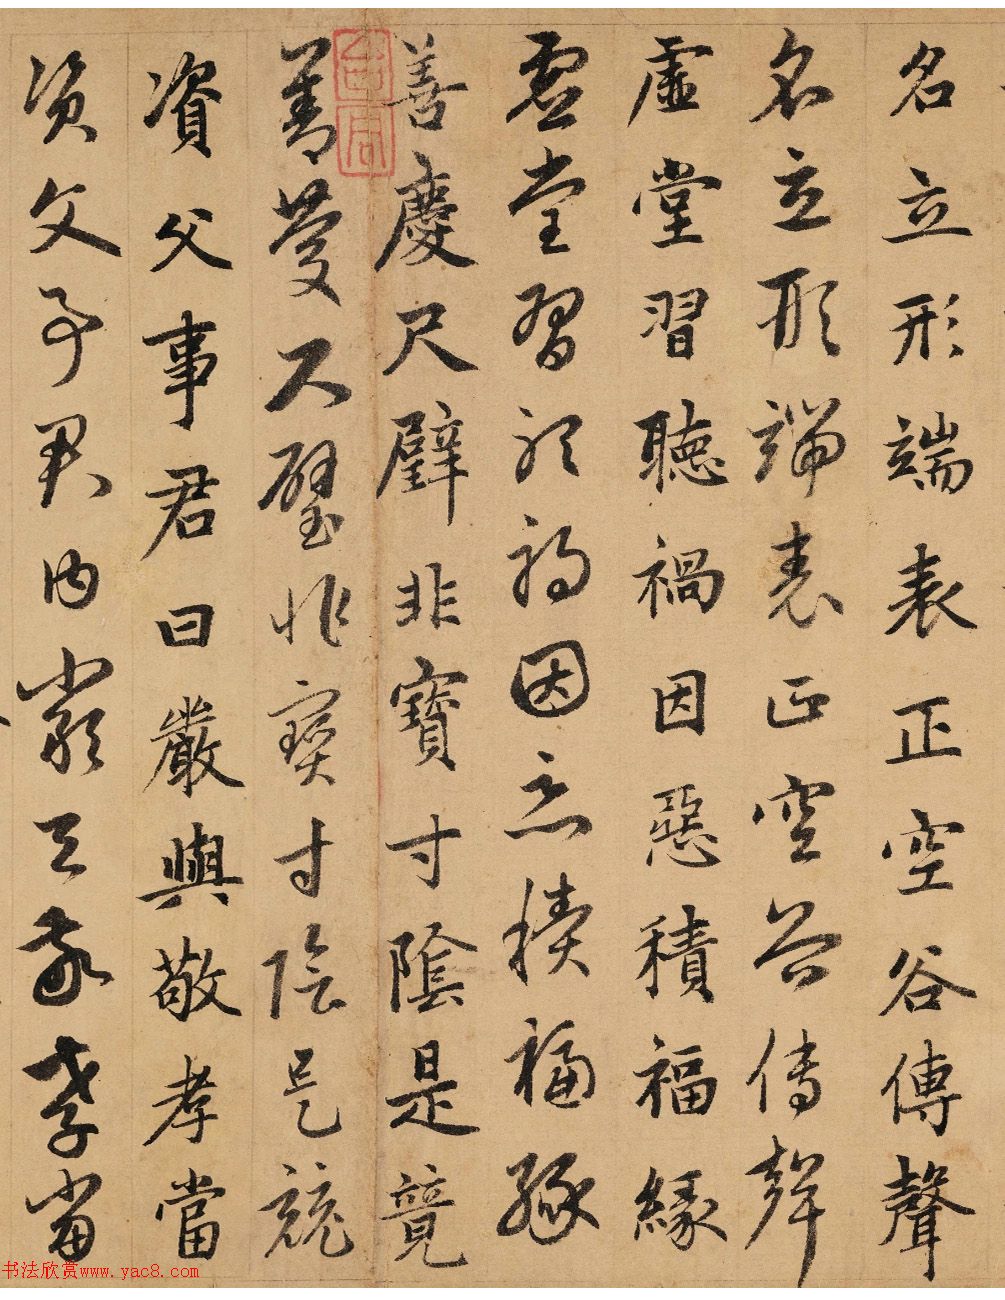 名立形端表正空谷傳聲
名立形端表正空谷傳聲
虛堂習聽禍因惡積福緣
虛堂習聽禍因惡積福緣
善慶尺璧非寶寸陰是競
善慶尺璧非寶寸陰是競
資父事君曰嚴與敬孝當
資父事君曰嚴與敬孝當
书法欣赏www.yac8.com